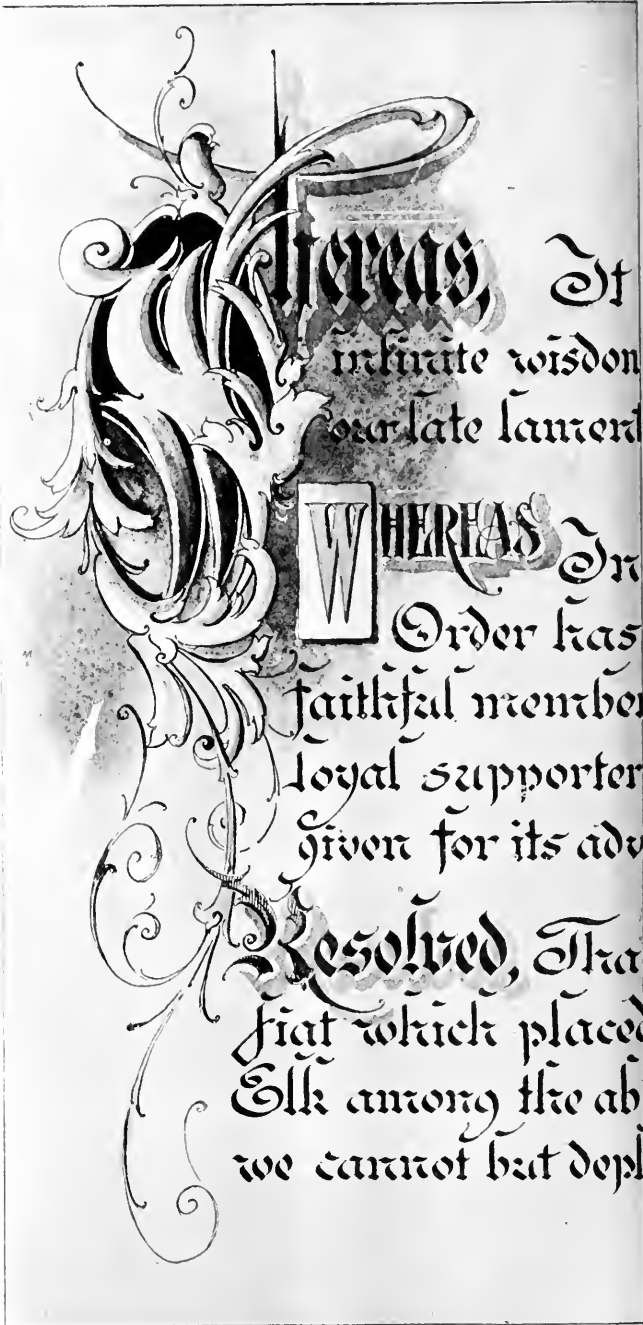 Whereas, It
infinite wisdom
our late lament
WHEREAS In
Order has
faithful member
loyal supporter
given for its adv
Resolved, Tha
fiat which placed
Elk among the ab
we cannot but depl